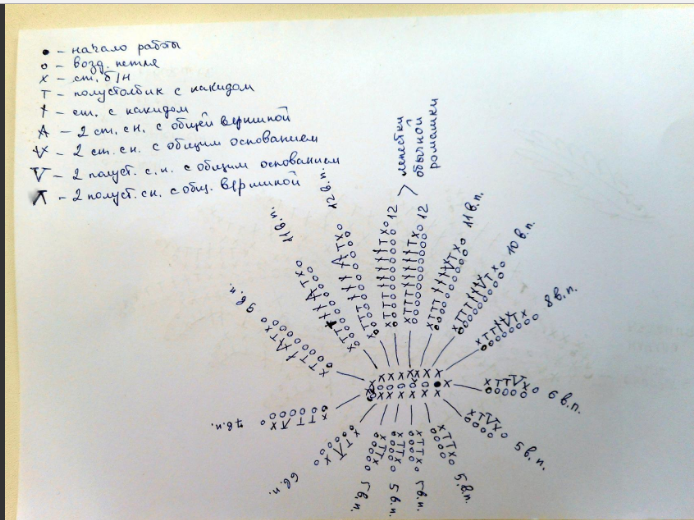 ● – начало работы
o – возд. петля
x – ст. б/н
T – полустолбик с накидом
† – ст. с накидом
– 2 ст. с н. с общей вершиной
– 2 ст. с н. с общим основанием
– 2 полуст. с н. с общим основанием
– 2 полуст. с н. с общ. вершиной
лепестки
обычной
ромашки
11 в.п.
12 в.п.
12
12
11 в.п.
10 в.п.
9 в.п.
8 в.п.
7 в.п.
6 в.п.
6 в.п.
5 в.п.
5 в.п.
5 в.п.
5 в.п.
5 в.п.